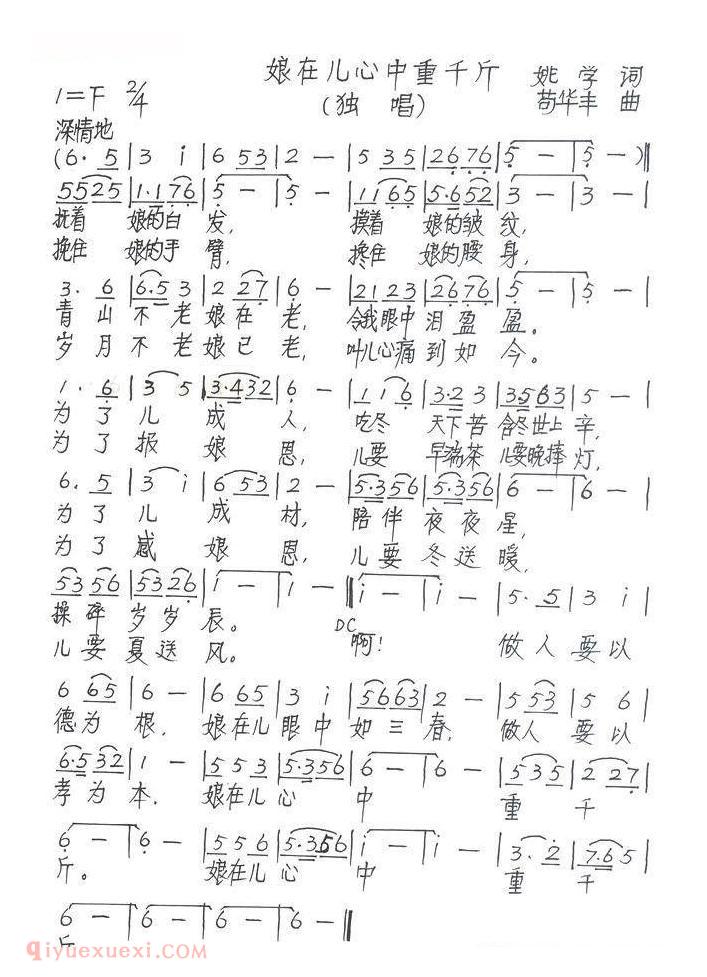 娘在儿心中重千斤
(独 唱)
姚 学 词
苟华丰 曲
1=F 2/4
深情地
(6· 5|3 i|6 53|2 —|5 35|26 76|5 —|5 —)‖
5525|1·1 76|5 —|5 —|1165|5·6 52|3 —|3 —|
抚着 娘的白 发, 摸着 娘的皱 纹,
挽住 娘的手 臂, 搀住 娘的腰 身,
3. 6|6·5 3|2 27|6 —|21 23|26 76|5 —|5 —|
青 山 不 老 娘 在 老, 令我眼中 泪 盈 盈。
岁 月 不 老 娘 已 老, 叫儿心痛 到 如 今。
1. 6|3 5|3·432|6 —|1 1 6|3·2 3|3563|5 —|
为 了 儿 成 人, 吃冬 天下 苦 含冬世上 辛,
为 了 报 娘 恩, 儿要 早端茶 儿要晚捧 灯,
6. 5|3 i|6 53|2 —|5·356|5·356|6 —|6 —|
为 了 儿 成 材, 陪 伴 夜 夜 星,
为 了 感 娘 恩, 儿 要 冬 送 暖,
53 56|53 26|i —|i —‖i —|i —|5. 5|3 i|
操 碎 岁 岁 辰。 DC 啊! 做 人 要 以
儿 要 夏 送 风。
6 65|6 —|6 65|3 i|56 63|2 —|5 53|5 6|
德 为 根, 娘在儿 眼 中 如 三 春, 做人 要 以
6·5 32|1 —|5 5 3|5·356|6 —|6 —|5 35|2 27|
孝 为 本, 娘在儿 心 中 重 千
6 —|6 —|5 5 6|5·356|i —|i —|3. 2|7·6 5|
斤。 娘在儿 心 中 重 千
6 —|6 —|6 —|6 —‖
斤
qiyuexuexi.com(七月学习网)